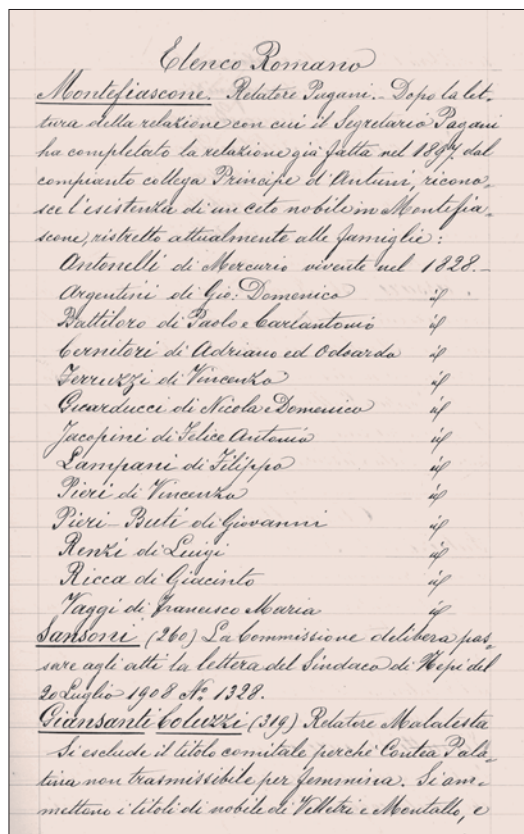 Elenco Romano
Montefiascone. Relatore Pagani. - Dopo la let-
tura della relazione con cui il Segretario Pagani
ha completato la relazione già fatta nel 1897 dal
compianto collega Principe d'Antuni, ricono-
sce l'esistenza di un ceto nobile in Montefia-
scone, ristretto attualmente alle famiglie:
Antonelli di Mercurio vivente nel 1828. -
Argentini di Gio: Domenico id
Battiloro di Paolo e Carlantonio id
Cernitori di Adriano ed Odoardo id
Ferruzzi di Vincenzo id
Guarducci di Nicola e Domenico id
Jacopini di Felice Antonio id
Lampani di Filippo id
Pieri di Vincenzo id
Pieri-Buti di Giovanni id
Renzi di Luigi id
Ricca di Giacinto id
Vaggi di Francesco Maria id
Sansoni (260) La Commissione delibera pas-
sare agli atti la lettera del Sindaco di Nepi del
20 Luglio 1908 No. 1328.
Giansanti Coluzzi (319) Relatore Malatesta
Si esclude il titolo comitale perchè Contea Pala-
tina non trasmissibile per femmina. Si am-
mettono i titoli di nobile di Velletri e Montalto, e